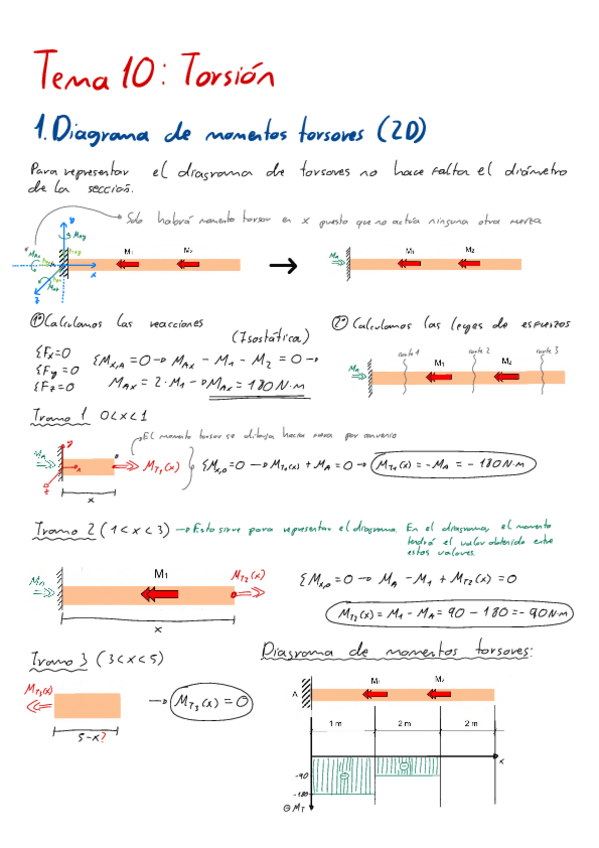 Tema 10: Torsión
1. Diagrama de momentos torsores (2D)
Para representar el diagrama de torsores no hace falta el diámetro
de la sección.
Solo habrá momento torsor en x puesto que no actúa ninguna otra fuerza
M₁ M₂
x
y
z
MA M₁ M₂
1º Calculamos las reacciones
(Isostática)
ΣFx=0
ΣFy=0
ΣFz=0
ΣMx,A=0 → MAx - M₁ - M₂ = 0 →
MAx = 2·M₁ → MAx = 180 N·m
2º Calculamos las leyes de esfuerzos
corte 1 corte 2 corte 3
MA M₁ M₂
Tramo 1 0<x<1
El momento torsor se dibuja hacia fuera por convenio
MA MT₁(x)
x
ΣMx,0=0 → MT₁(x) + MA = 0 → MT₁(x) = -MA = -180 N·m
Tramo 2 (1<x<3) → Esto sirve para representar el diagrama. En el diagrama, el momento
tendrá el valor obtenido entre
estos valores.
MA M₁ MT2(x)
x
ΣMx,0=0 → MA - M₁ + MT2(x) = 0
MT2(x) = M₁ - MA = 90 - 180 = -90 N·m
Tramo 3 (3<x<5)
MT₃(x)
5-x?
→ MT₃(x) = 0
Diagrama de momentos torsores:
A M₁ M₂
1 m 2 m 2 m
x
-90
-180
⊖ MT